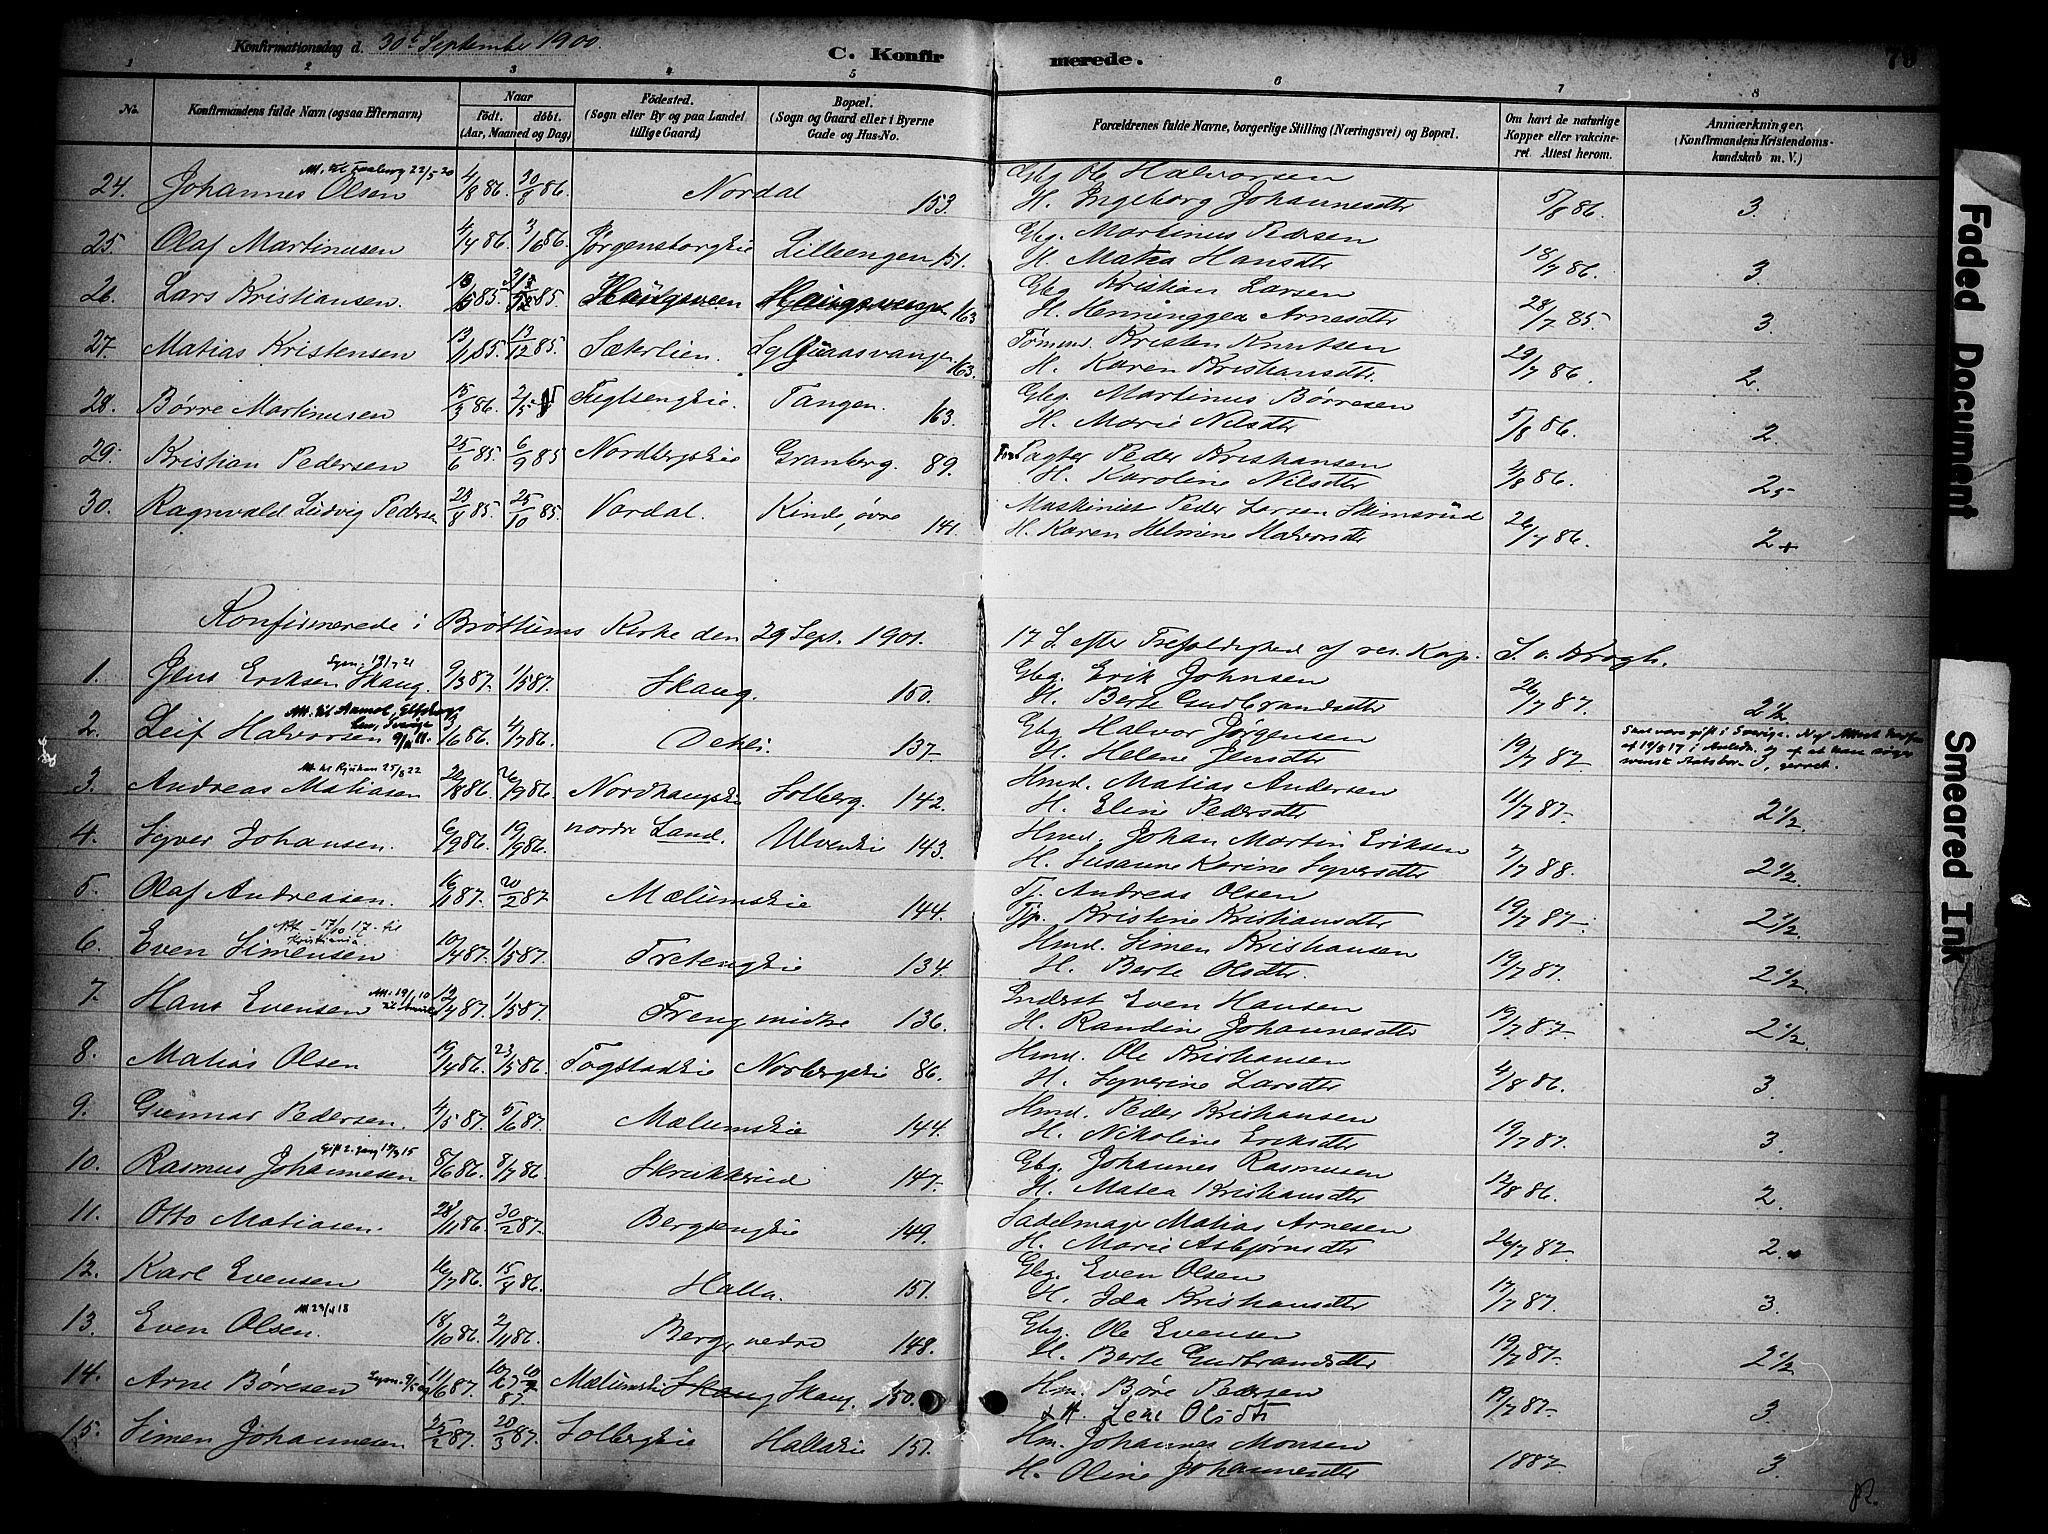 Konfirmationsdag d. 30t September 1900.
C. Konfirmerede.
70
1 2 3 4 5 6 7 8
No. Konfirmandens fulde Navn (ogsaa Efternavn) Naar født. døbt. (Aar, Maaned og Dag) Fødested. (Sogn eller By og paa Landet tillige Gaard) Bopæl. (Sogn og Gaard eller i Byerne Gade og Hus-No. Forældrenes fulde Navne, borgerlige Stilling (Næringsvei) og Bopæl. Om havt de naturlige Kopper eller vakcineret Attest herom. Anmærkninger. (Konfirmandens Kristendomskundskab m. V.)
Att. til Faaberg 22/5 20
24. Johannes Olsen 4/8 86. 30/8 86. Nordal 153. Gbg Ole Halvorsen
H. Ingeborg Johannesdtr 5/8 86. 3.
25. Olaf Martinusen 4/4 86. 3/6 86. Jørgensborgeie Lilleengen 151. Gbg. Martinus Pedersen
H. Matea Hansdtr 18/7 86. 3
26. Lars Kristiansen. 85. 85. Haugsveen 163 Gbg Kristian Larsen
H. Henninggea Arnesdtr 28/7 85. 3.
27. Matias Kristensen 13/11 85. 13/12 85. Sæterlien. 163. Tømmerm. Kristen Knutsen
H. Karen Kristiansdtr. 29/7 86. 2.
28. Børre Martinusen 15/3 86. 2/5 Tangen. 163. Gbg. Martinus Børresen
H. Marie Nilsdtr 5/8 86. 2.
29. Kristian Pedersen 25/6 85. 6/9 85 Nordbergseie Granberg. 89. Pagter Peder Kristiansen
H. Karoline Nilsdtr 3/8 86. 2
30. Ragnvald Ludvig Pedersen 23/8 85. 25/10 85. Nordal. Kinde, øvre 141. Maskinist Peder Larsen Skimsrud
H. Karen Helmine Halvorsdtr 26/7 86. 2+
Konfirmerede i Brøttums Kirke den 29 Sept. 1901. 17 S. efter Trefoldighed af res. Kap. S. v. Krogh.
1. Jens Eriksen Skaug. 9/3 87. 1/5 87. Skaug. 150. Gbg. Erik Johnsen
H. Berte Gudbrandsdtr 26/7 87. 2 1/2
2. Leif Halvorsen 9/11 11. 3/6 86. 4/7 86. Dehli. 137. Gbg Halvor Jørgensen
H. Helene Jensdtr 19/7 87. 3,
Att. til Rjukan 25/8 22
3. Andreas Matiasen 20/8 86. 26/9 86. Nordhaugseie Solberg. 142. Hmd. Matias Andersen
H. Eline Pedersdtr 11/7 87. 2 1/2.
4. Syver Johansen. 6/9 86. 19/9 86. nordre Land. Ulveneie 143. Hmd. Johan Martin Eriksen
H. Susanne Karine Syversdtr 7/7 88. 2 1/2.
5. Olaf Andreasen. 16/1 87. 20/2 87 Mælumseie 144. Tj. Andreas Olsen
Tjp. Kristine Kristiansdtr 19/7 87. 2 1/2.
Att - 17/10 17 - til Kristiania.
6. Even Simensen 10/4 87. 1/5 87. Tretengeie 134. Hmd. Simen Kristiansen
H. Berte Olsdtr. 19/7 87. 2 1/2.
7. Hans Evensen 12/4 87. 1/5 87. Freng midtre 136. Inderst Even Hansen
H. Randine Johannesdtr 19/7 87. 2 1/2.
8. Matias Olsen 19/4 86. 23/5 86. Fogstadeie Norbergseie 86. Hmd. Ole Kristiansen
H. Syverine Larsdtr 4/8 86. 3.
9. Gunnar Pedersen. 4/5 87. 5/6 87. Mælumseie 144. Hmd. Peder Kristiansen
H. Nikoline Eriksdtr 19/7 87. 3.
10. Rasmus Johannesen 8/6 86. 8/7 86 Skrukkerud 147. Gbg. Johannes Rasmusen
H. Matea Kristiansdtr 12/8 86. 2.
11. Otto Matiasen. 28/11 86. 30/2 87. Bergsengeie 149. Sadelmager Matias Arnesen
H. Marie Asbjørnsdtr 26/7 87. 2.
12. Karl Evensen 16/7 86. 15/8 86. Halla. 151. Gbg. Even Olsen
H. Ida Kristiansdtr 17/7 87. 3.
13. Even Olsen. 18/10 86. 2/11 86. Berg, nedre 148. Gbg. Ole Evensen
H. Berte Gudbrandsdtr 19/7 87. 2 1/2
14. Arne Børesen 11/6 87. Mælumseie Skaug Skaug. 150. Hm. Børe Pedersen
H. Lene Olsdtr 19/7 87. 3.
15. Simen Johannesen 25/2 87. 20/3 87. Solbergeie Hallaeie 151. Hm. Johannes Monsen
H. Oline Johannesdtr 1887. 3.
Faded Document
Smeared Ink